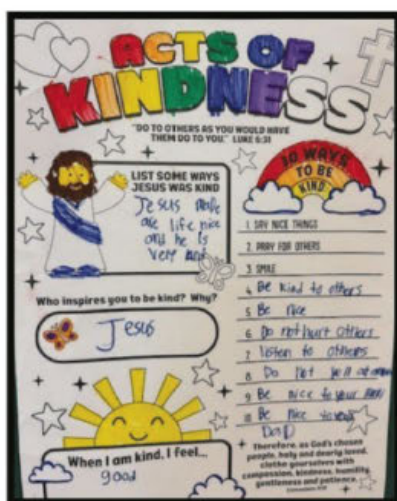 ACTS OF
KINDNESS
"DO TO OTHERS AS YOU WOULD HAVE
THEM DO TO YOU." LUKE 6:31
LIST SOME WAYS
JESUS WAS KIND
Jesus made
are life nice
and he is
very
Who inspires you to be kind? Why?
Jesus
When I am kind, I feel...
good
10 WAYS
TO BE
KIND
1. SAY NICE THINGS
2. PRAY FOR OTHERS
3. SMILE
4 Be kind to others
5 Be nice
6 Do not hurt others
7 listen to others
8 Do not yell at
9 Be nice to your
10 Be nice to your
DaD
Therefore, as God's chosen
people, holy and dearly loved,
clothe yourselves with
compassion, kindness, humility,
gentleness and patience.